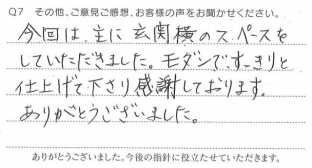 Q7 その他、ご意見ご感想、お客様の声をお聞かせください。
今回は、主に玄関横のスペースを
していただきました。モダンで、すっきりと
仕上げて下さり感謝しております。
ありがとうございました。
ありがとうございました。今後の指針に役立たせていただきます。